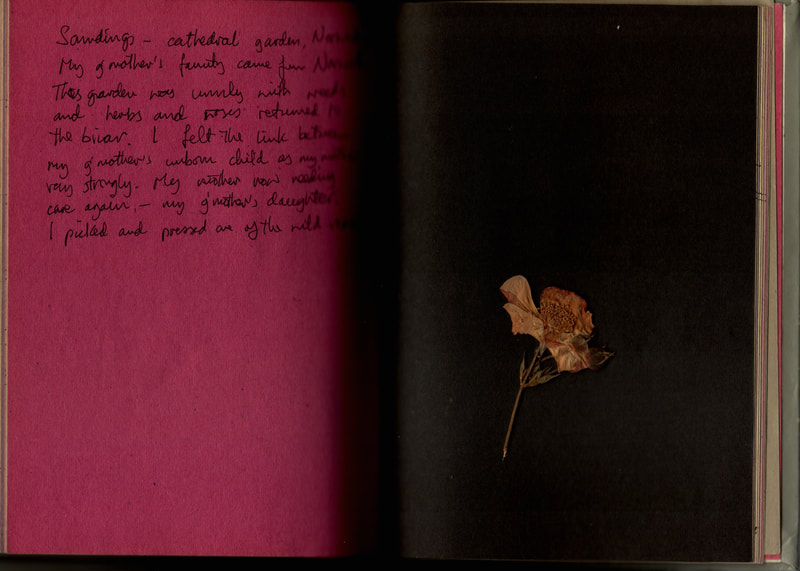 Sawdings – cathedral garden,
My g'mother's family came from
This garden was unruly with weeds
and herbs and roses returned to
the briar. I felt the link between
my g'mother's unborn child as my
very strongly. My mother now needing
care again – my g'mother's daughter
I picked and pressed one of the wild